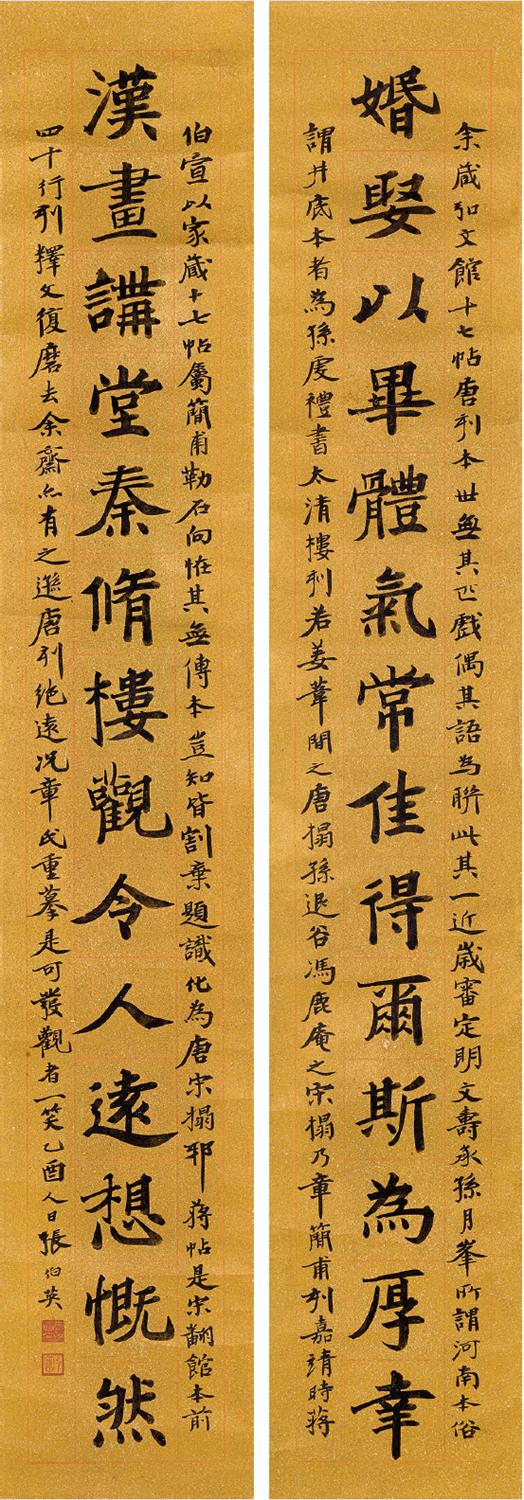 余藏弘文館十七帖唐刊本世無其匹戲偶其語為聯此其一近歲審定明文壽承孫月峯所謂河南本俗
婚娶以畢體氣常佳得爾斯為厚幸
謂井底本者為孫虔禮書太清樓刊若姜葦間之唐搨孫退谷馮鹿庵之宋搨乃章簡甫刊嘉靖時蔣
伯宣以家藏十七帖屬簡甫勒石向怪其無傳本豈知皆割棄題識化為唐宋搨邪蔣帖是宋翻館本前
漢畫講堂秦脩樓觀令人遠想慨然
四十行刊釋文復磨去余齋亦有之遜唐刊絕遠況章氏重摹是可發觀者一笑乙酉人日張伯英